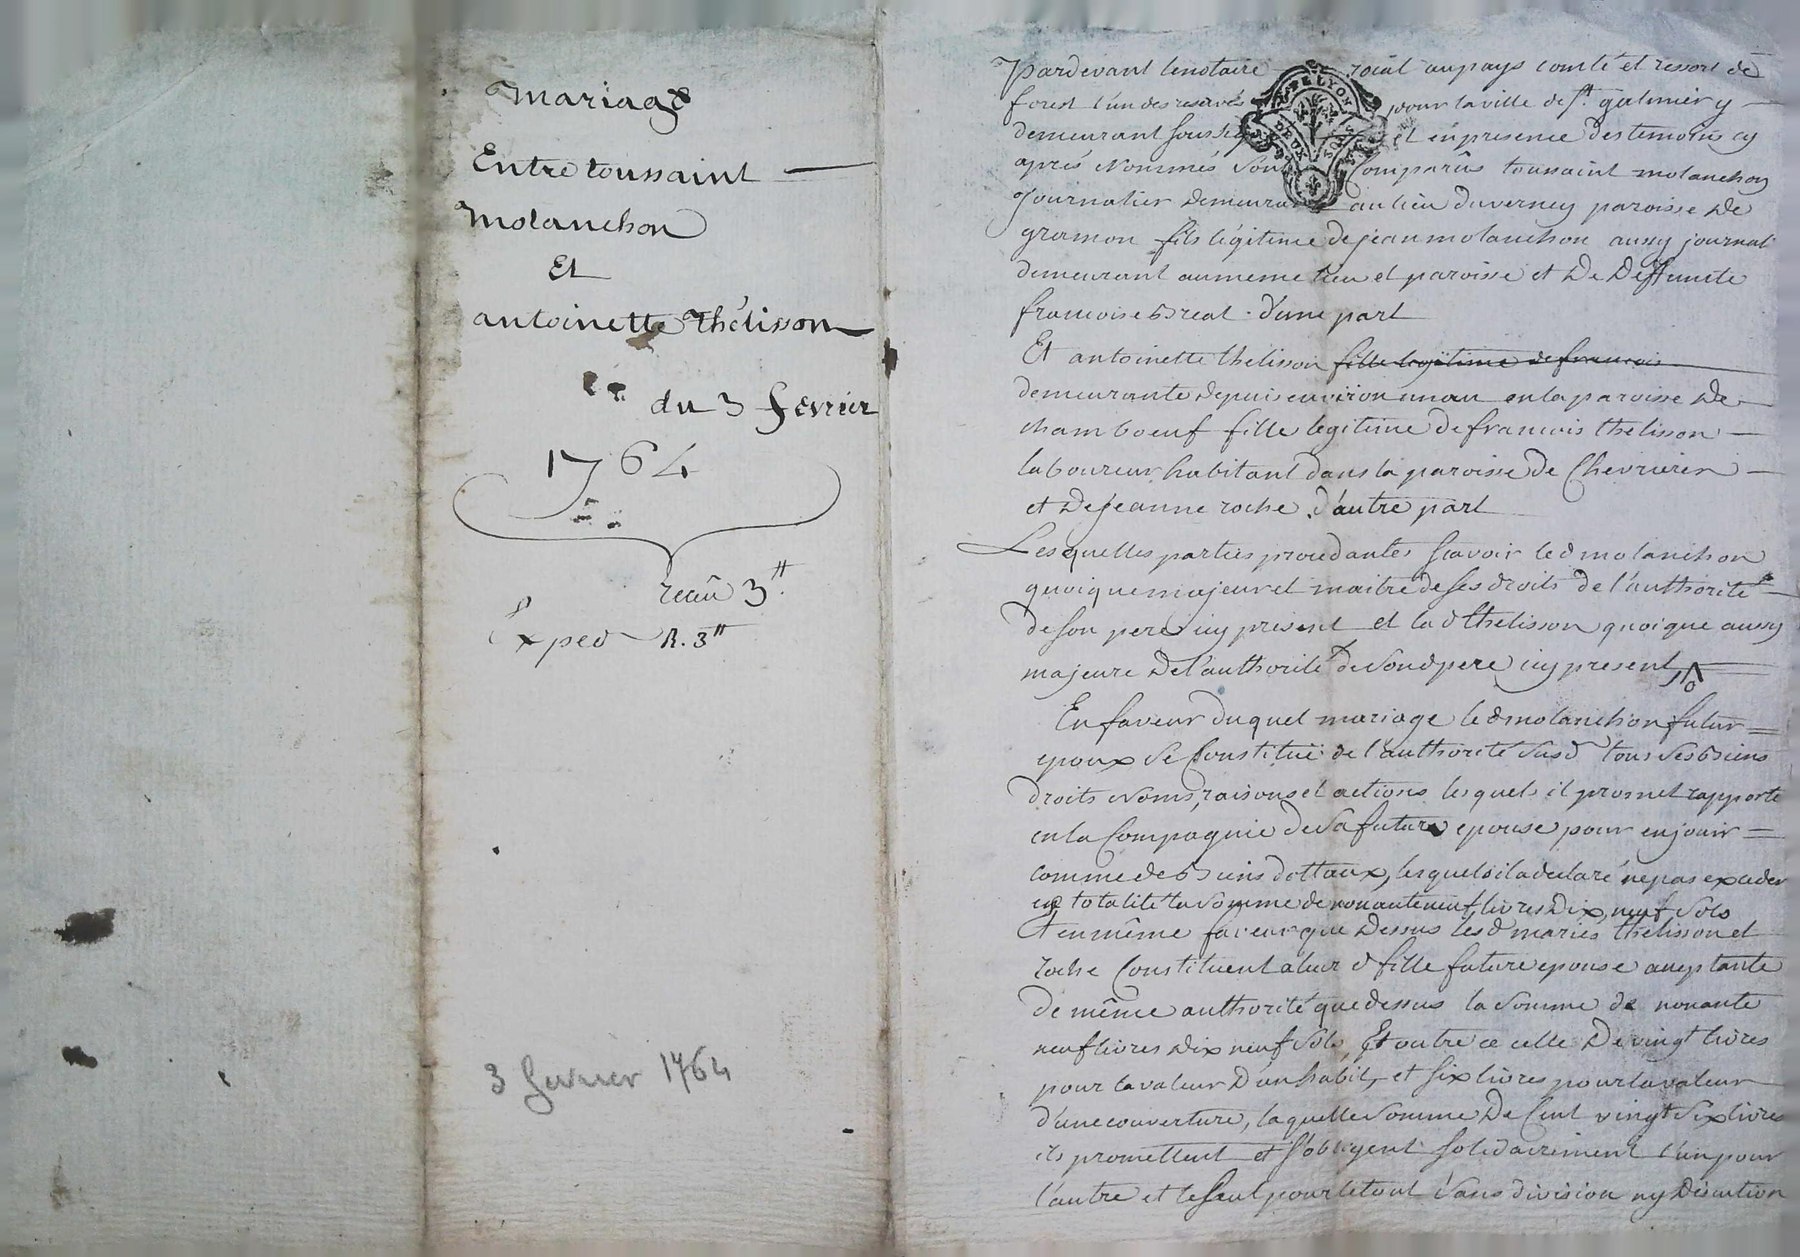 mariage
Entre toussaint
molanchon
Et
antoinette Thélisson
du 3 fevrier
1764
receû 3tt
Exped R. 3tt
3 fevrier 1764
Pardevant le notaire roial au pays comté et ressort de
forest l'un des reservés pour la ville de st galmier y
demeurant soussig et en presence des temoins cy
aprés nommés sont comparûs toussaint molanchon
journalier demeurant au lieu duverney paroisse de
gramon fils légitime de jean molanchon aussy journali
demeurant au meme lieu et paroisse et de deffuncte
francoise breat d'une part
Et antoinette thelisson fille legitime de francois
demeurante depuis environ un an en la paroisse de
chamboeuf fille legitime de francois thelisson
laboureur habitant dans la paroisse de Chevrieres
et de jeanne roche d'autre part
Lesquelles parties procedantes scavoir led molanchon
quoique majeur et maitre de ses droits de l'authorité
de son pere icy present et lad thelisson quoique aussy
majeure de l'authorité de sond pere icy present
En faveur duquel mariage led molanchon futur
epoux se Constitüe de l'authorité susd tous ses biens
droits noms, raisons et actions lesquels il promet rapporte
en la Compagnie de sa future epouse pour en jouir
comme de biens dottaux, lesquels il a declaré ne pas exceder
en totalité la somme de nonante neuf livres dix neuf sols
Et en même faveur que dessus lesd mariés thelisson et
roche Constituent a leur d fille future epouse acceptante
de même authorité que dessus la somme de nonante
neuf livres dix neuf sols, Et outre ce celle de vingt livres
pour la valeur d'un habit, et six livres pour la valeur
d'une couverture, laquelle somme de Cent vingt six livres
ils promettent et s'obligent solidairement l'un pour
l'autre et le seul pour le tout sans division ny discution